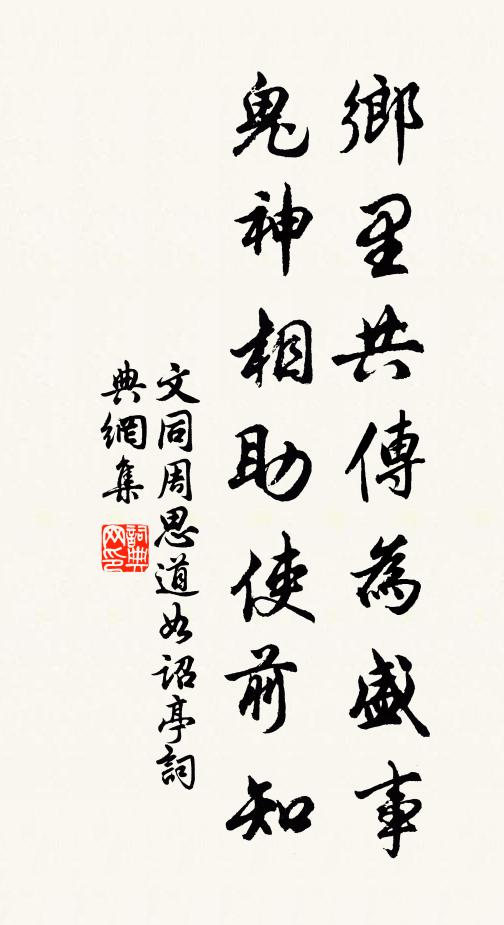 鄉里共傳為盛事
鬼神相助使前知
文同周思道如詔亭詞
典網集
詞典
网印